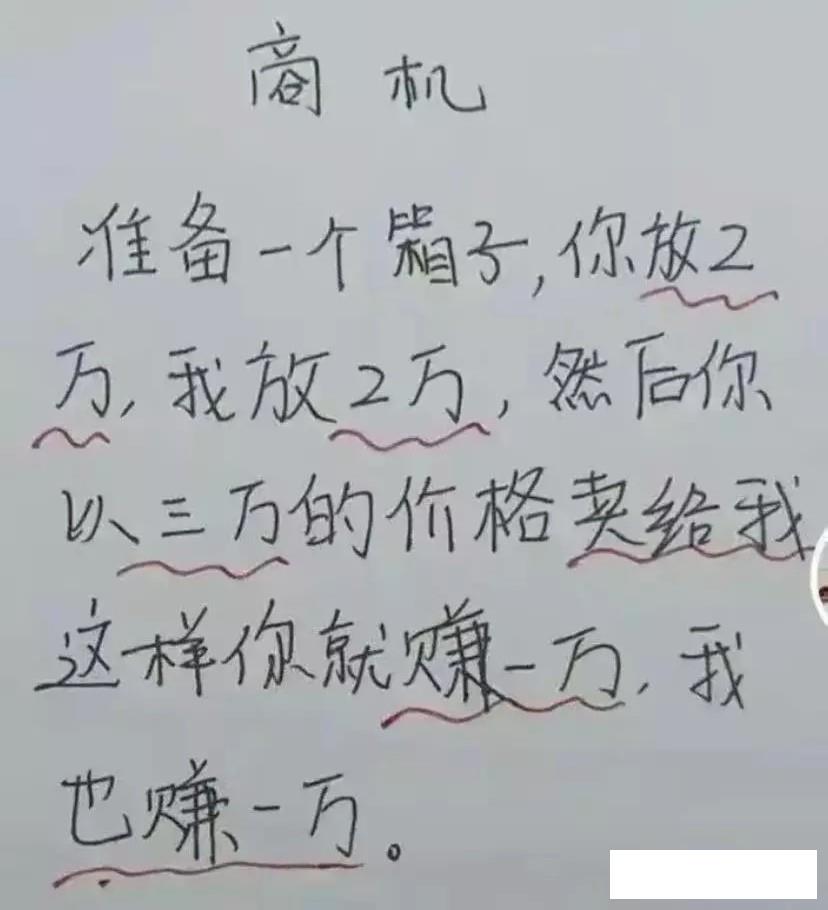 商机
准备一个箱子,你放2
万,我放2万,然后你
以三万的价格卖给我
这样你就赚一万,我
也赚一万。